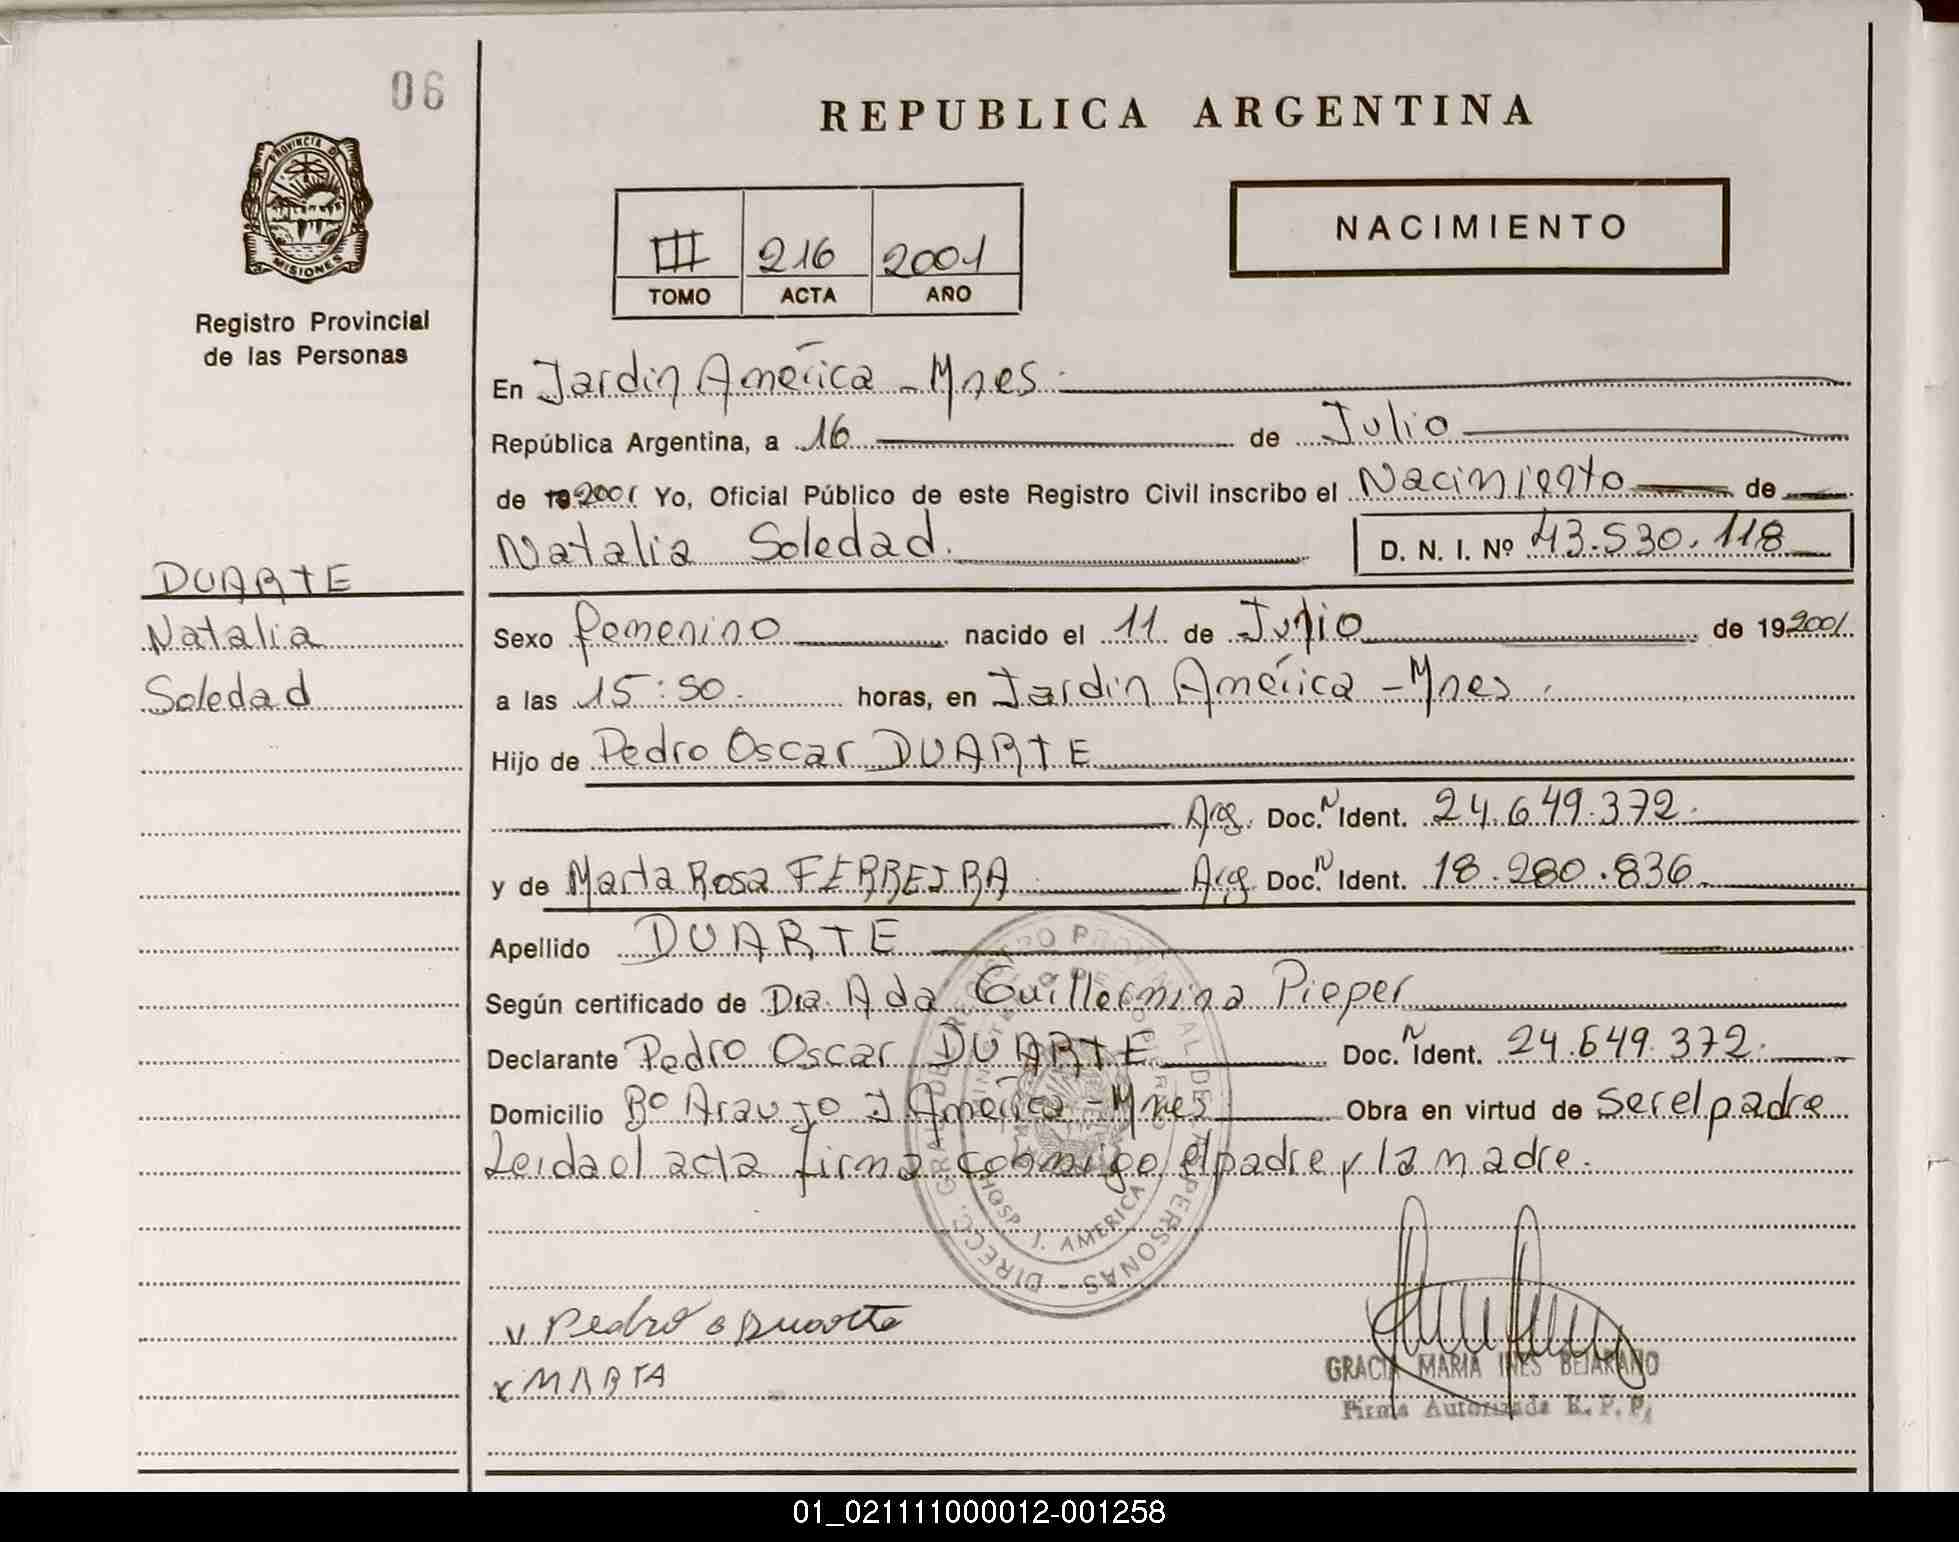 06
PROVINCIA DE
MISIONES
Registro Provincial
de las Personas
REPUBLICA ARGENTINA
III 216 2001
TOMO ACTA AÑO
NACIMIENTO
En Jardín América - Mnes.
República Argentina, a 16 de Julio
de 19 2001 Yo, Oficial Público de este Registro Civil inscribo el Nacimiento de
Natalia Soledad. D. N. I. Nº 43.530.118
DUARTE
Natalia
Soledad
Sexo femenino nacido el 11 de Julio de 19 2001
a las 15:50. horas, en Jardín América - Mnes.
Hijo de Pedro Oscar DUARTE
Arg. Doc. N Ident. 24.649.372.
y de Marta Rosa FERREIRA Arg. Doc. N Ident. 18.280.836
Apellido DUARTE
Según certificado de Dra. Ada Guillermina Pieper
Declarante Pedro Oscar DUARTE Doc. N Ident. 24.649.372.
Domicilio Bº Araujo J. América - Mnes Obra en virtud de ser el padre
Leida el acta firma conmigo el padre y la madre.
HOSP. J. AMERICA
DIRECC. GRAL. DEL REGISTRO PROVINCIAL DE LAS PERSONAS
v Pedro o Duarte
x MARTA
GRACIA MARIA INES BEJARANO
Firma Autorizada R. P. P.
01_021111000012-001258